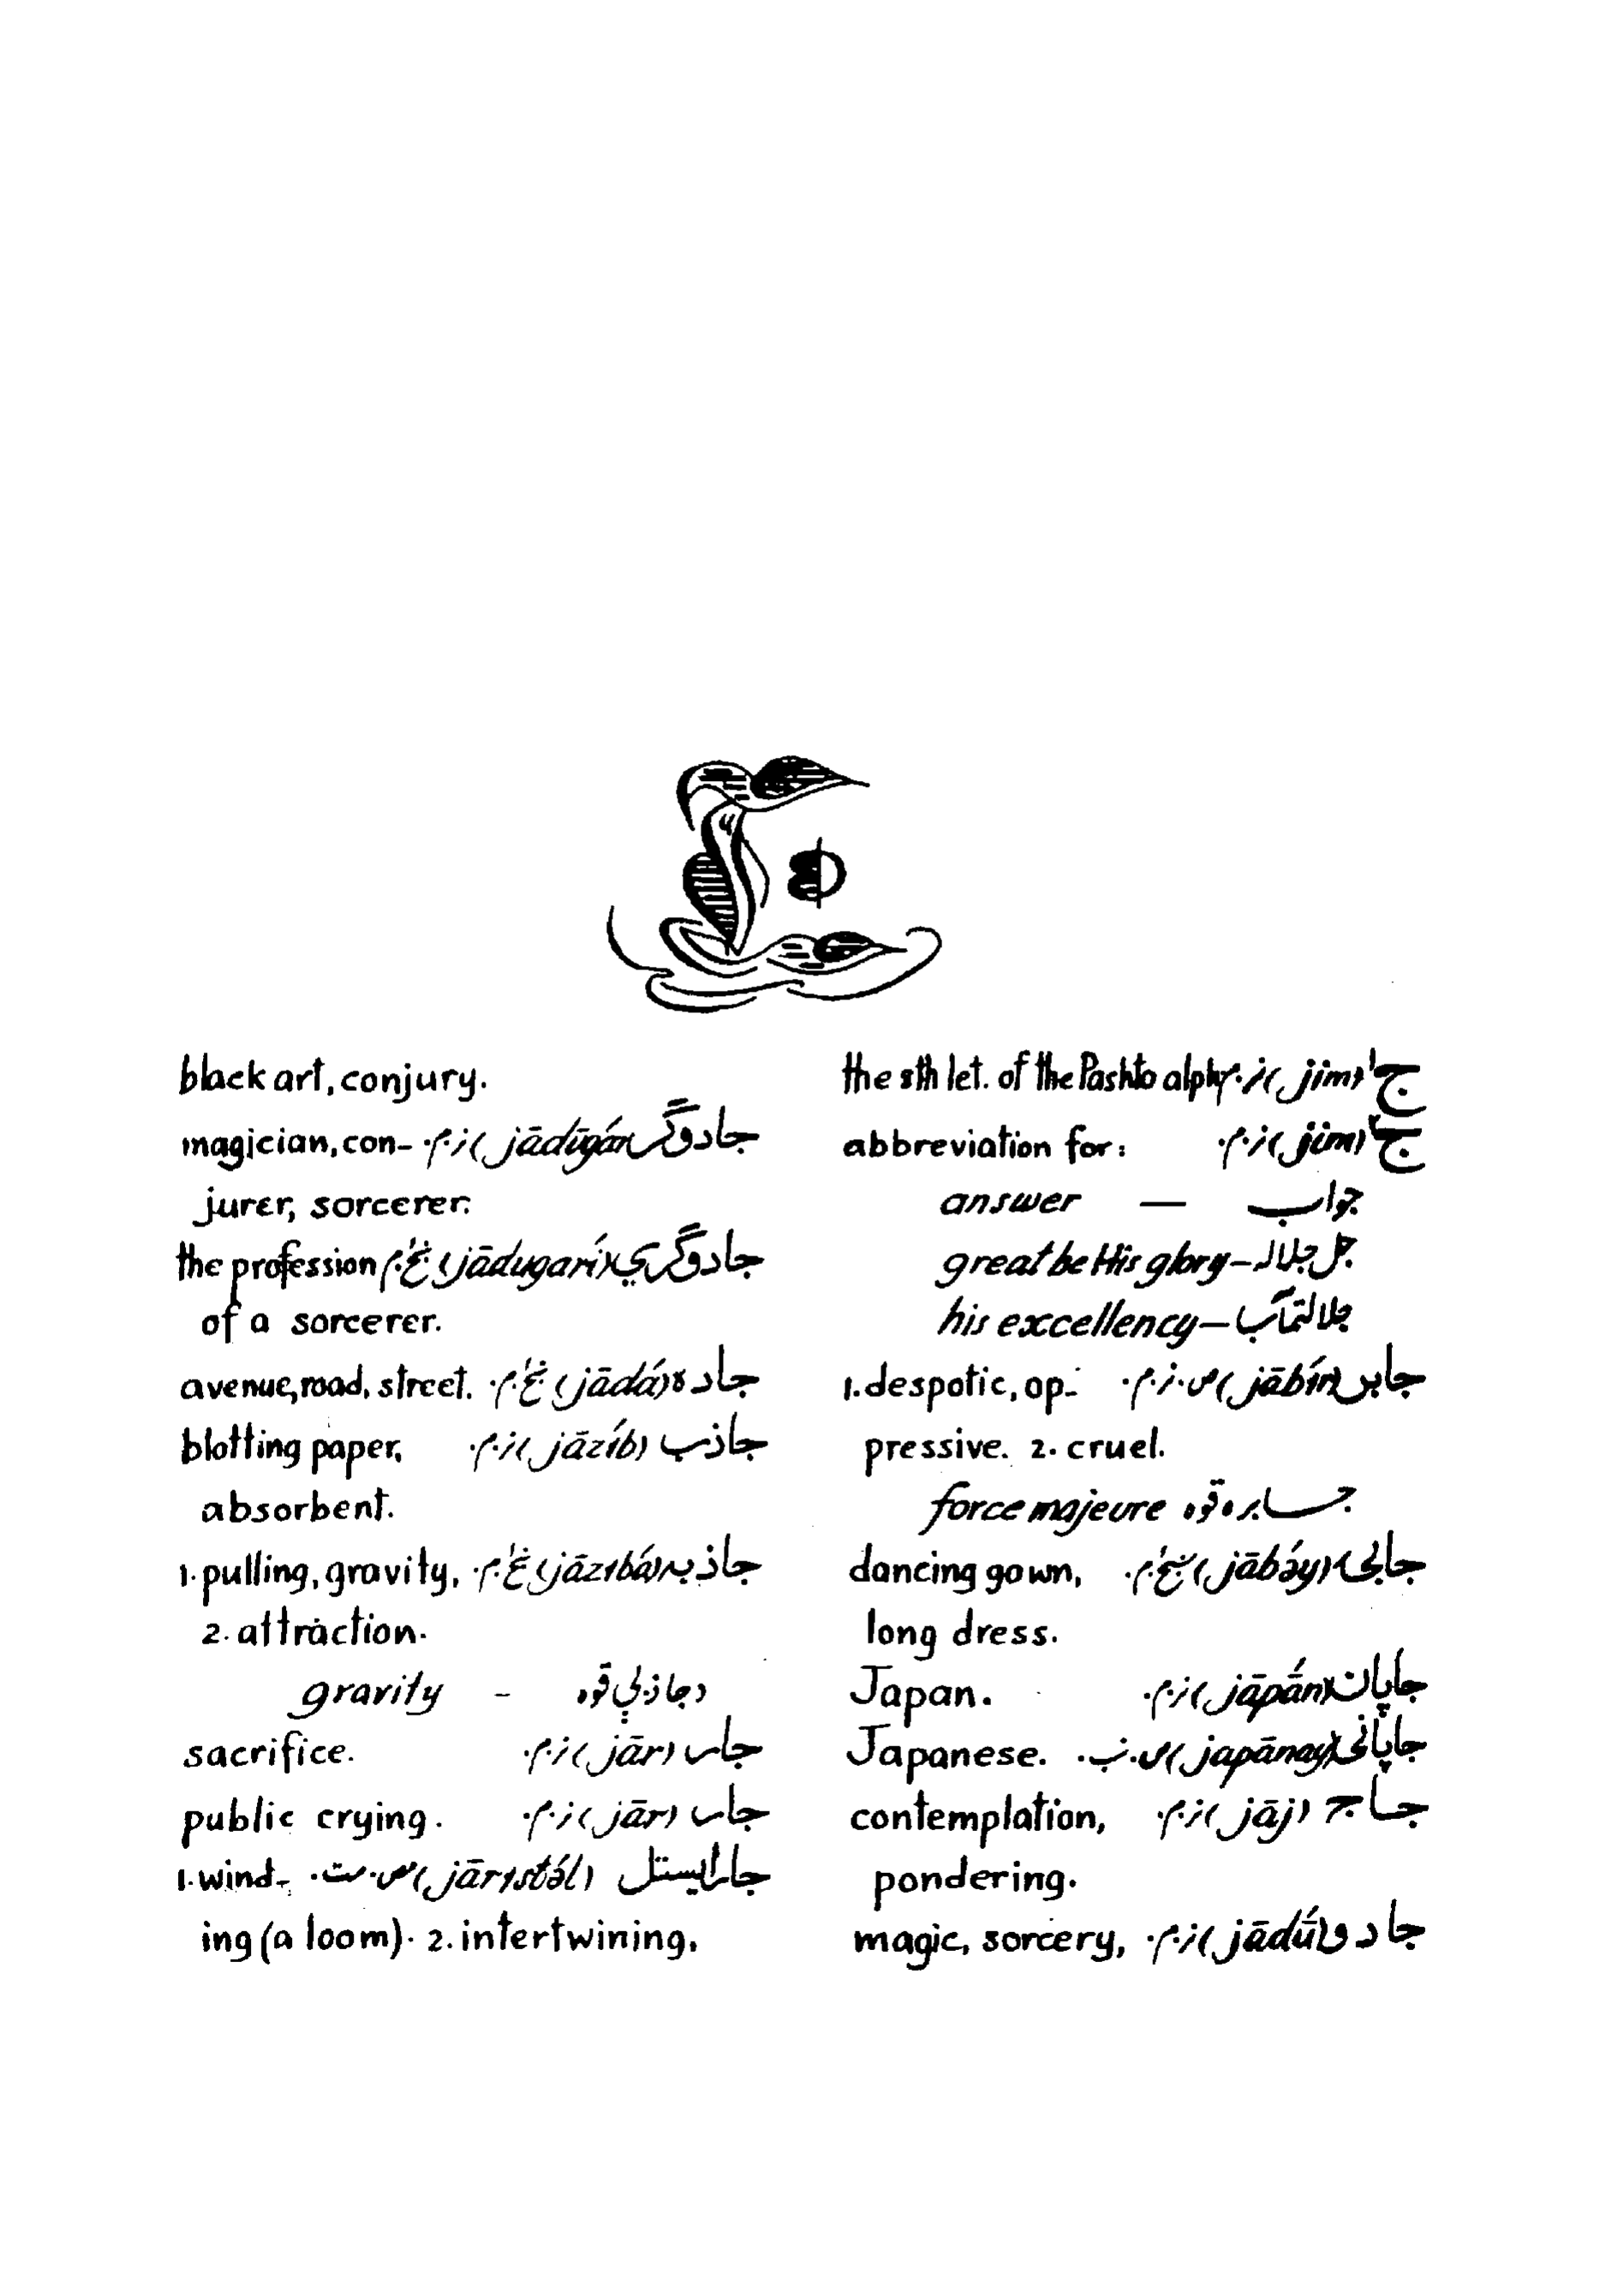 ج
ج۱ (jim) ن.م. the 8th let. of the Pashto alph.
ج۲ (jim) ن.م. abbreviation for:
جواب — answer
جل جلاله – great be His glory
جلالتمآب – his excellency
جابر (jābír) ص.ن.م. 1. despotic, op-
pressive. 2. cruel.
جابره قوه force majeure
جابۍ (jābə́y) ښځ.م. dancing gown,
long dress.
جاپان (jāpā́n) ن.م. Japan.
جاپانی (japānay) ص. ب. Japanese.
جاج (jāj) ن.م. contemplation,
pondering.
جادو (jādū́) ن.م. magic, sorcery,
black art, conjury.
جادوګر (jādūgár) ن.م. magician, con-
jurer, sorcerer.
جادوګري (jādugarí) ښځ.م. the profession
of a sorcerer.
جاده (jādá) ښځ.م. avenue, road, street.
جاذب (jāzíb) ن.م. blotting paper,
absorbent.
جاذبه (jāzıbá) ښځ.م. 1. pulling, gravity,
2. attraction.
د جاذبې قوه - gravity
جار (jār) ن.م. sacrifice.
جار (jār) ن.م. public crying.
جارایستل (jārıstə́l) ص.ت. 1. wind-
ing (a loom). 2. intertwining,